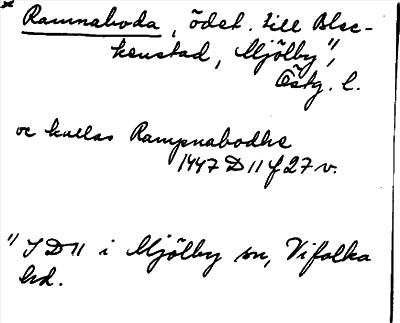 * Ramnaboda, ödet. till Blec-
kenstad, Mjölby 1),
Östg. l.
oc kallas Rampnabodhe
1447 D 11 f 27 v.
1) I D 11 i Mjölby sn, Vifolka
hd.